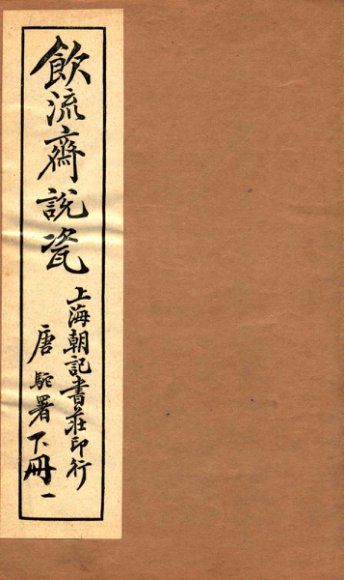 飲流齋說瓷
上海朝記書莊印行
唐駝署 下冊一